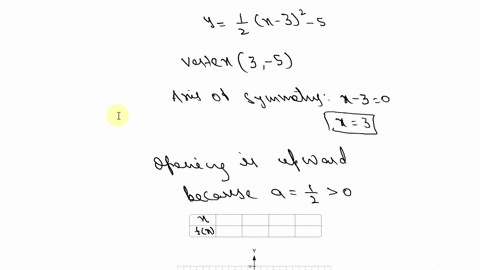 y = 1/2 (x-3)² -5
vertex (3, -5)
Axis of symmetry: x-3=0
x = 3
Opening is upward
because a = 1/2 > 0
x
f(x)
Y